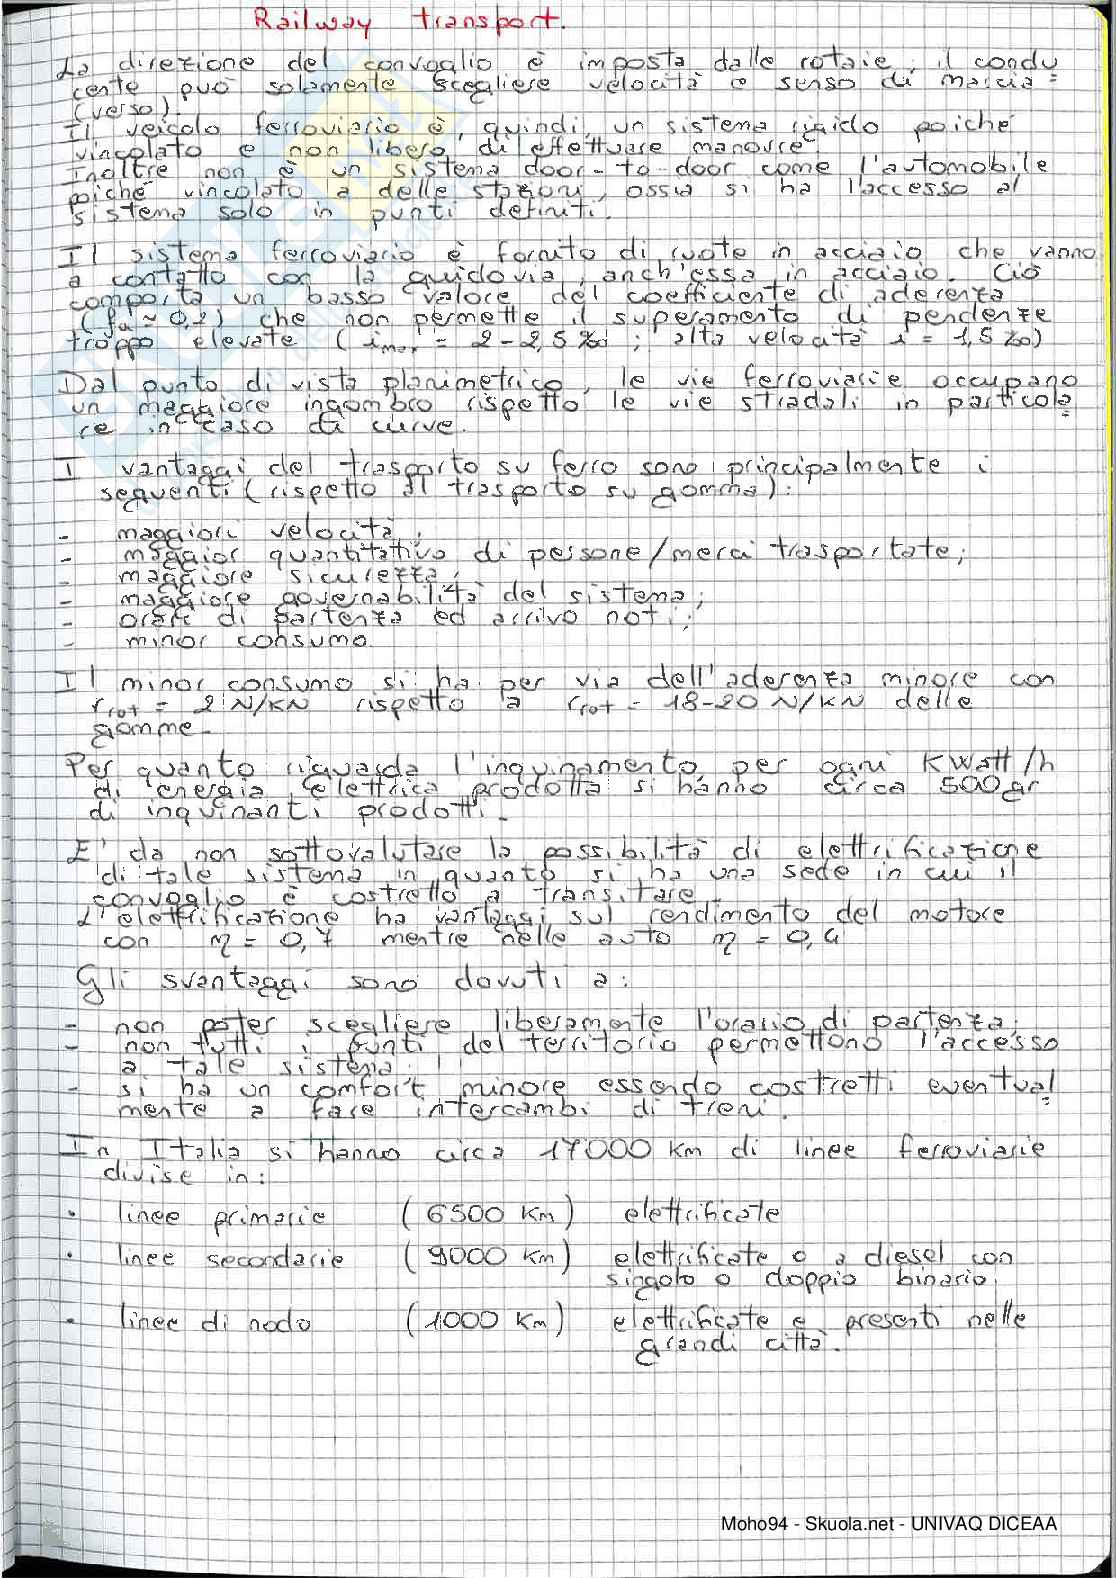 Railway transport.
La direzione del convoglio è imposta dalle rotaie; il condu
cente può solamente scegliere velocità e senso di marcia
(verso).
Il veicolo ferroviario è, quindi, un sistema rigido poiché
vincolato e non libero di effettuare manovre
Inoltre non è un sistema door-to-door come l'automobile
poiché vincolato a delle stazioni, ossia si ha l'accesso al
sistema solo in punti definiti.
Il sistema ferroviario è fornito di ruote in acciaio che vanno
a contatto con la guidovia, anch'essa in acciaio. Ciò
comporta un basso valore del coefficiente di aderenza
(fa ≃ 0,2) che non permette il superamento di pendenze
troppo elevate (imax = 2-2,5 ‰ ; alta velocità i = 1,5 ‰)
Dal punto di vista planimetrico, le vie ferroviarie occupano
un maggiore ingombro rispetto le vie stradali in particola
re in caso di curve.
I vantaggi del trasporto su ferro sono principalmente i
seguenti (rispetto al trasporto su gomma):
- maggiori velocità;
- maggior quantitativo di persone/merci trasportate;
- maggiore sicurezza;
- maggiore governabilità del sistema;
- orari di partenza ed arrivo noti;
- minor consumo.
Il minor consumo si ha per via dell'aderenza minore con
rrot = 2 N/KN rispetto a rrot = 18-20 N/KN delle
gomme.
Per quanto riguarda l'inquinamento, per ogni KWatt/h
di energia elettrica prodotta si hanno circa 500 gr
di inquinanti prodotti.
E' da non sottovalutare la possibilità di elettrificazione
di tale sistema in quanto si ha una sede in cui il
convoglio è costretto a transitare.
L'elettrificazione ha vantaggi sul rendimento del motore
con η = 0,7 mentre nelle auto η = 0,4
Gli svantaggi sono dovuti a:
- non poter scegliere liberamente l'orario di partenza;
- non tutti i punti del territorio permettono l'accesso
a tale sistema;
- si ha un comfort minore essendo costretti eventual
mente a fare intercambi di treni.
In Italia si hanno circa 17000 Km di linee ferroviarie
divise in:
• linee primarie (6500 Km) elettrificate
• linee secondarie (9000 Km) elettrificate o a diesel con
singolo o doppio binario;
• linee di nodo (1000 Km) elettrificate e presenti nelle
grandi città.
Moho94 - Skuola.net - UNIVAQ DICEAA